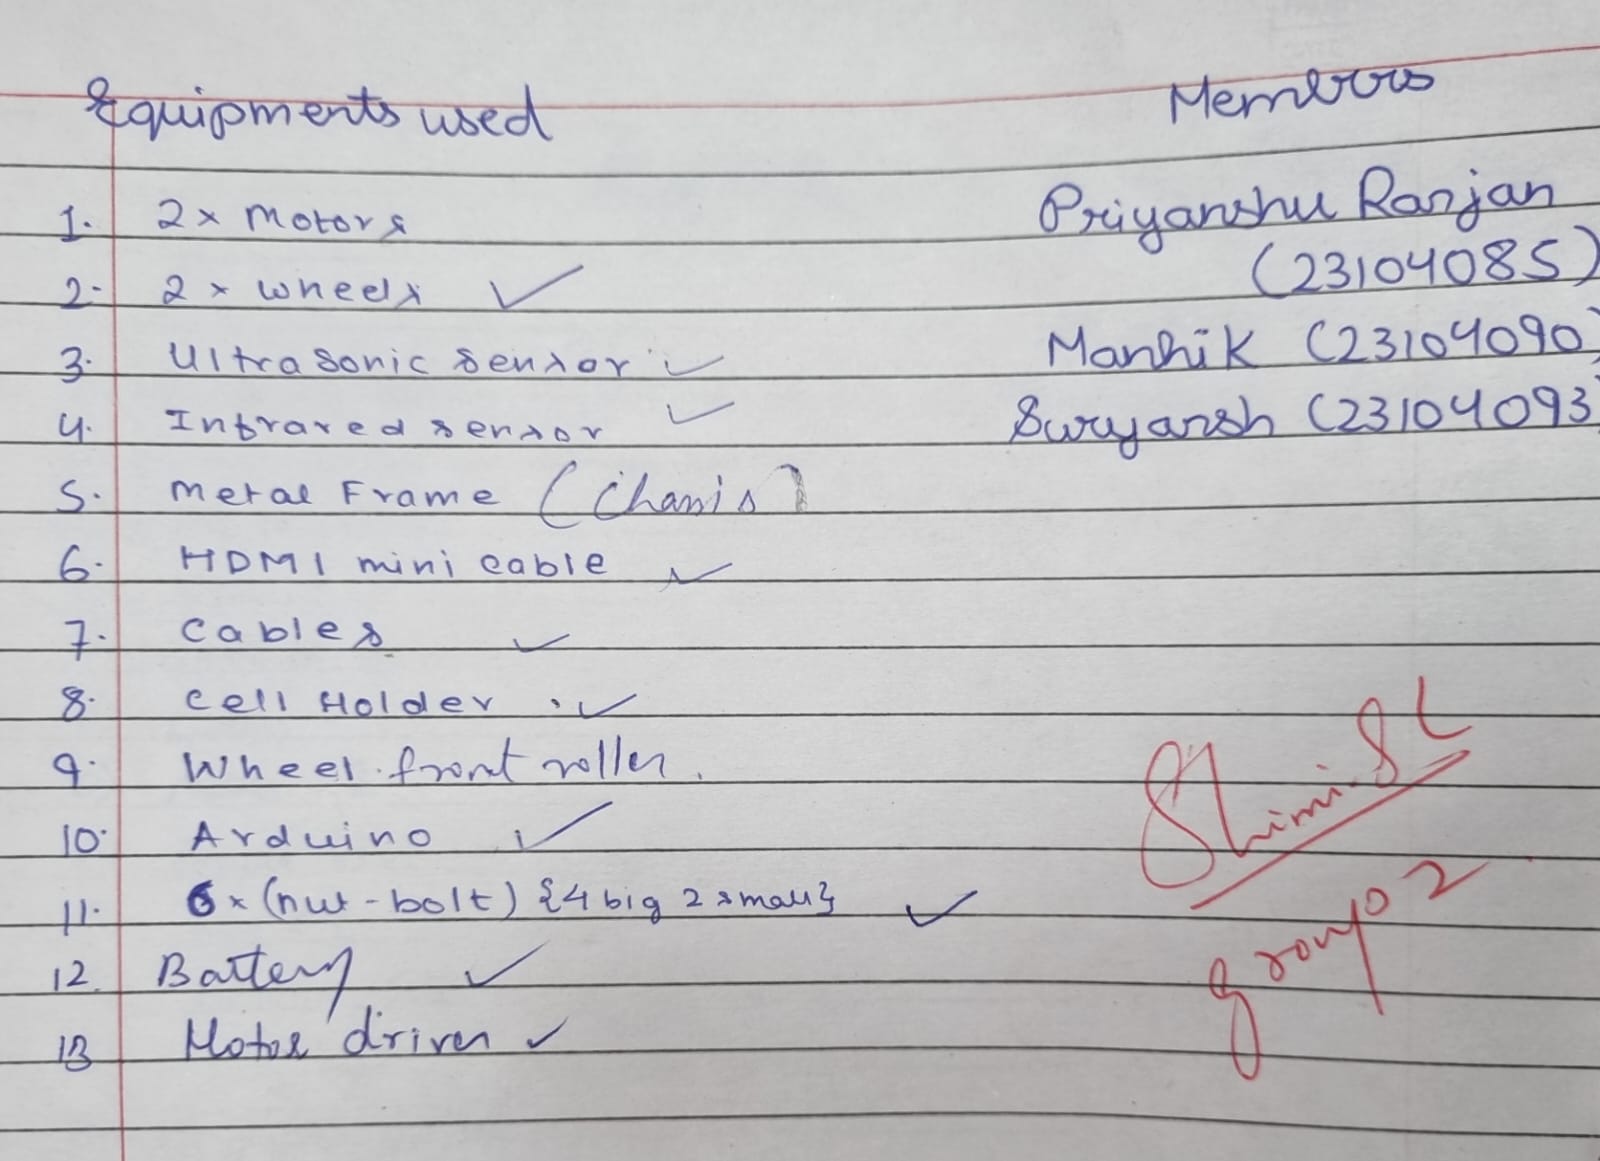 Equipments used
Members
1. 2x Motors
2. 2 x wheels ✓
3. Ultrasonic sensor ✓
4. Infrared sensor ✓
5. Metal Frame (Chassis)
6. HDMI mini cable ✓
7. Cables ✓
8. Cell Holder ✓
9. Wheel front roller.
10. Arduino ✓
11. 6 x (nut-bolt) {4 big 2 small} ✓
12. Battery ✓
13 Motor driver ✓
Priyanshu Ranjan
(23104085)
(23104090)
Suryansh (23104093
group 2